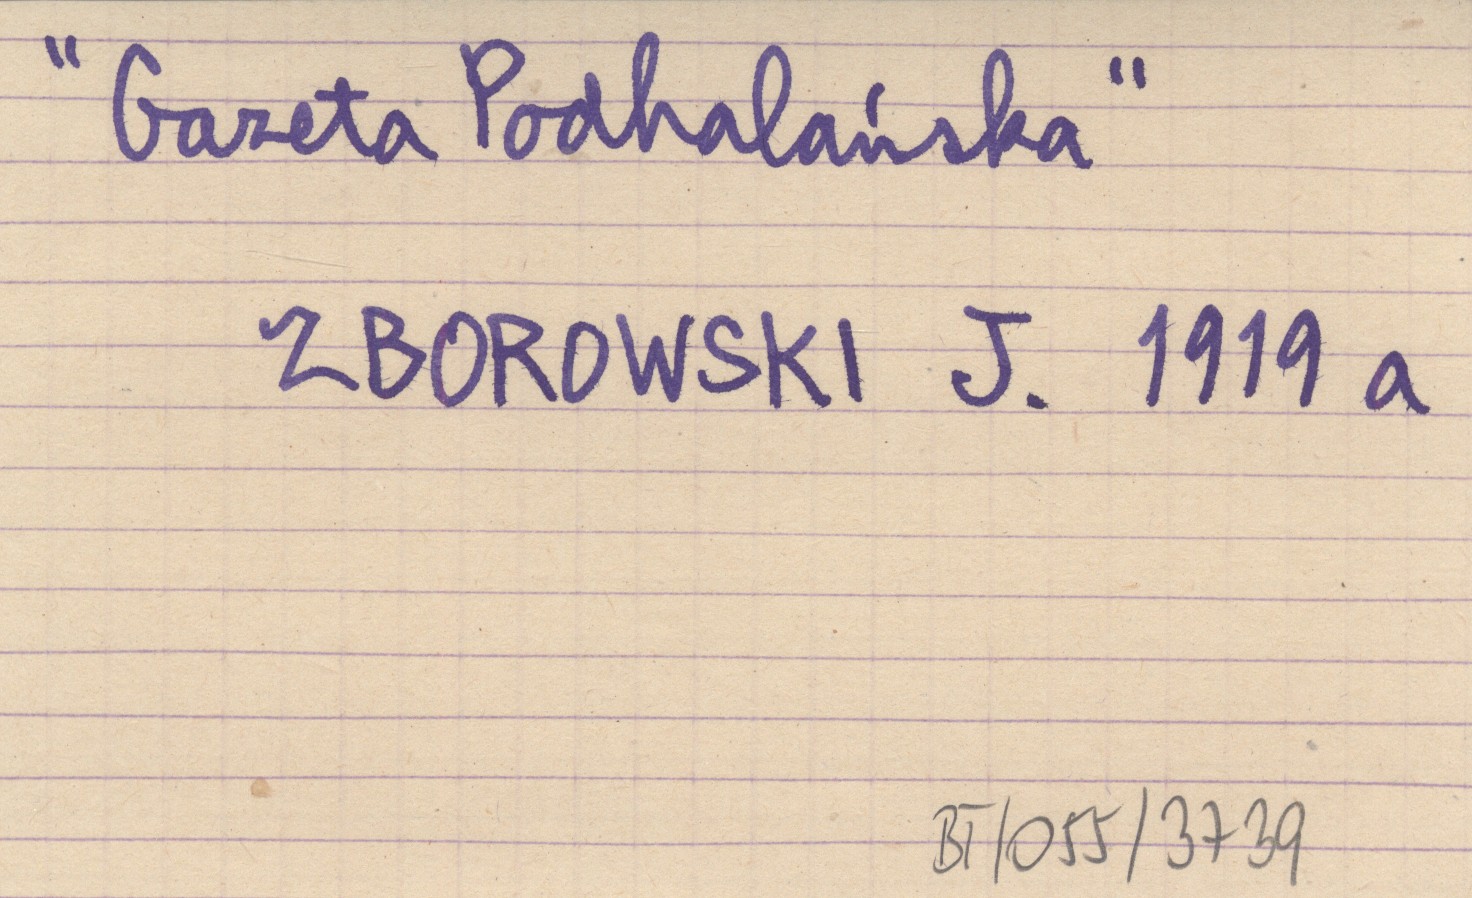 "Gazeta Podhalańska"
ZBOROWSKI J. 1919 a
BT/055/3739